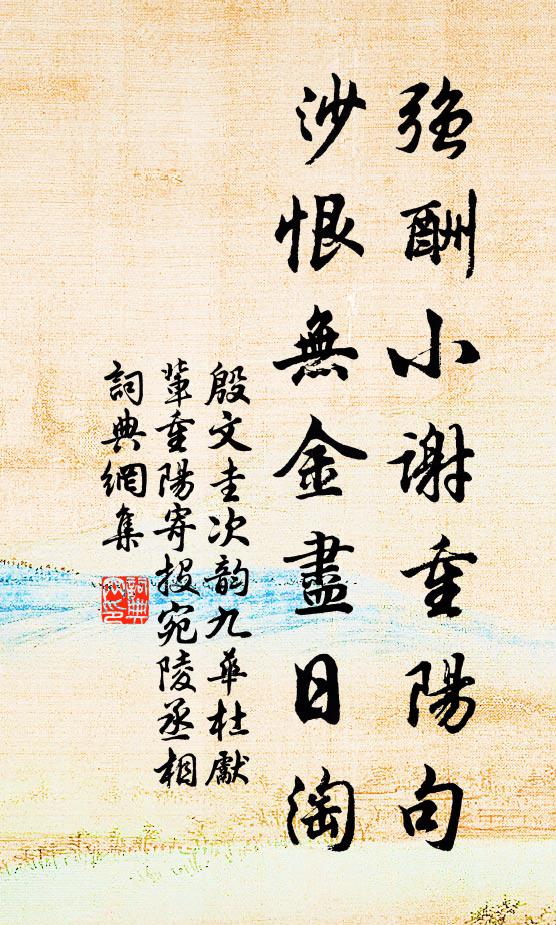 强酬小謝重陽句
沙恨無金盡日淘
殷文圭次韵九華杜獻
輩重陽寄投宛陵丞相
詞典網集